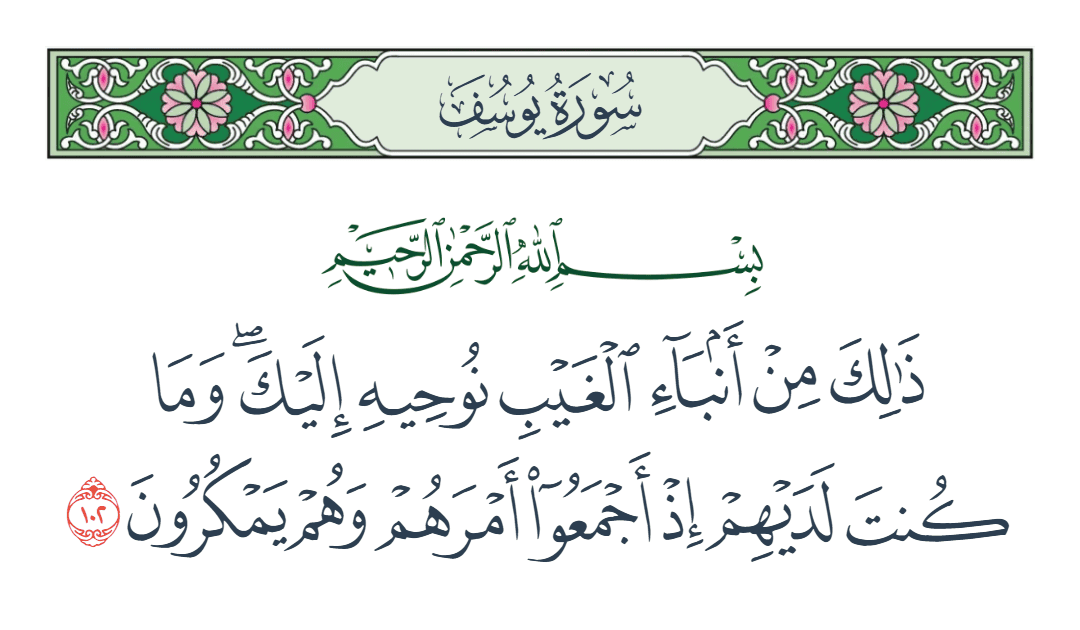 سُورَةُ يُوسُفَ
بِسْمِ ٱللَّهِ ٱلرَّحْمَٰنِ ٱلرَّحِيمِ
ذَٰلِكَ مِنْ أَنۢبَآءِ ٱلْغَيْبِ نُوحِيهِ إِلَيْكَ ۖ وَمَا
كُنتَ لَدَيْهِمْ إِذْ أَجْمَعُوٓا۟ أَمْرَهُمْ وَهُمْ يَمْكُرُونَ ١٠٢